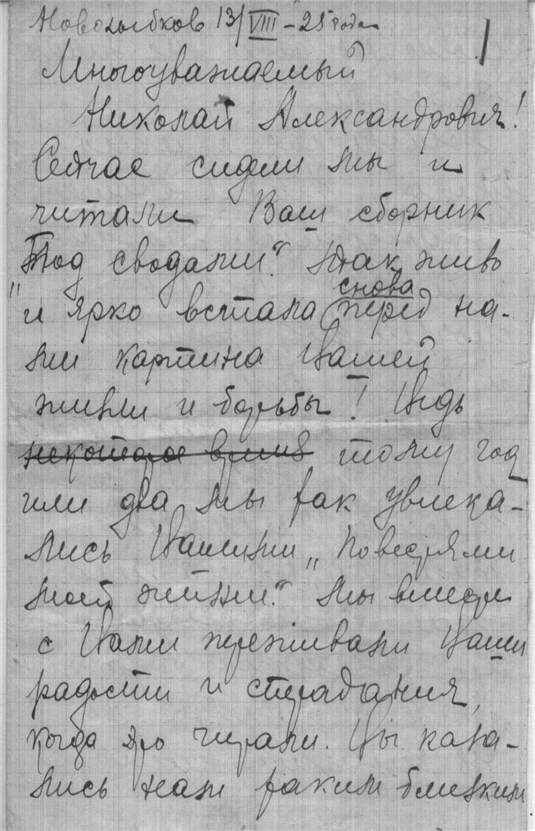 Новозыбков 13/VIII – 25 года
1
Многоуважаемый
Николай Александрович!
Сейчас сидели мы и
читали Ваш сборник
„Под сводами“. Так живо
и ярко встала снова перед на-
ми картина Вашей
жизни и борьбы! Ведь
некоторое время тому год
или два мы так увлека-
лись Вашими „Повестями
моей жизни“. Мы вместе
с Вами переживали Ваши
радости и страдания,
когда это читали. Вы каза-
лись нам таким близким